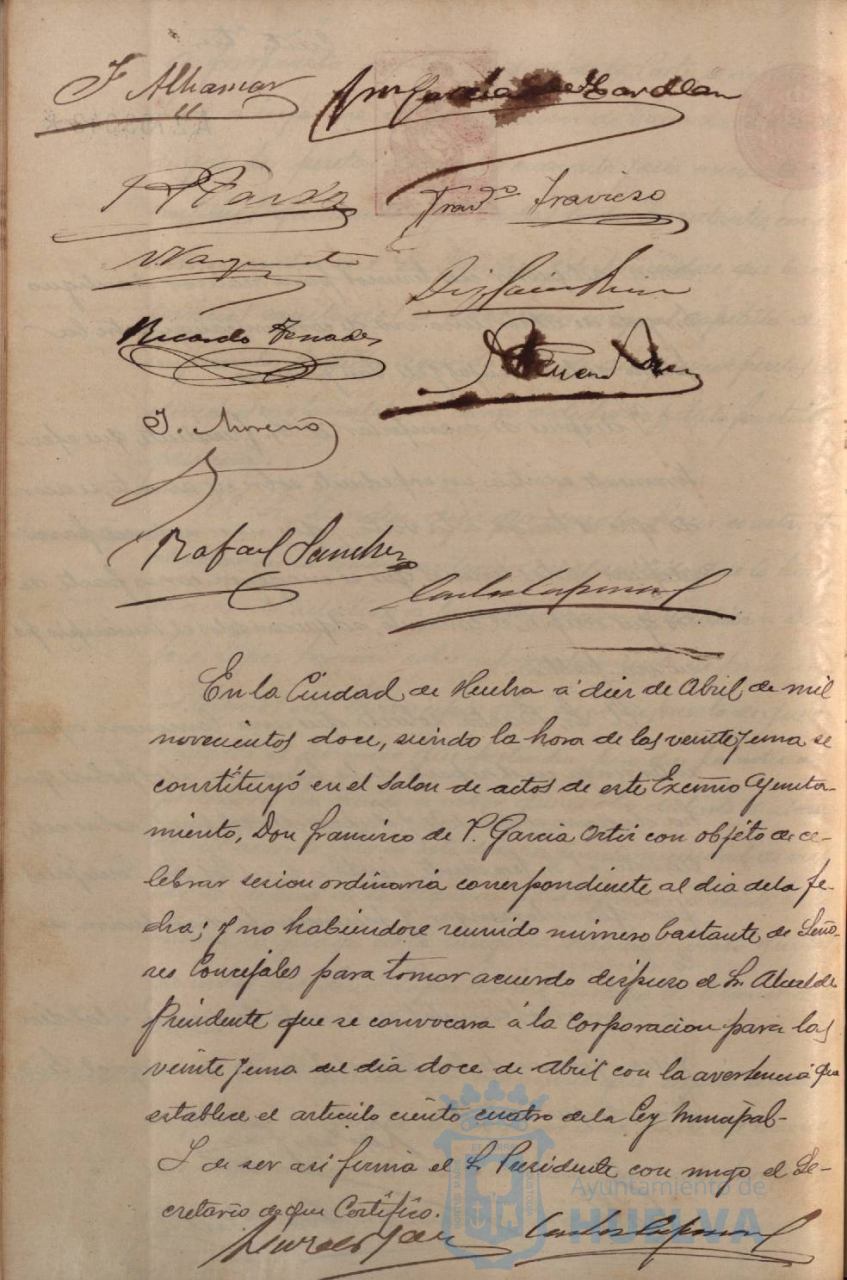 J Alhamar
Franco Travieso
Ricardo Terrades
J. Moreno
Rafael Sanchez
En la Ciudad de Huelva á diez de Abril de mil
novecientos doce, siendo la hora de las veinte y una se
constituyó en el salon de actos de este Excmo Ayunta-
miento, Don Francisco de P. Garcia Ortiz con objeto de ce-
lebrar sesion ordinaria correspondiente al dia de la fe-
cha; y no habiendose reunido número bastante de Seño-
res Concejales para tomar acuerdo dispuso el Sr. Alcalde
Presidente que se convocara á la Corporacion para las
veinte y una del dia doce de Abril con la advertencia que
establece el articulo ciento cuatro de la Ley Municipal-
Y de ser asi firma el Sr Presidente con migo el Se-
cretario de que Certifico.
Ayuntamiento de
HUELVA